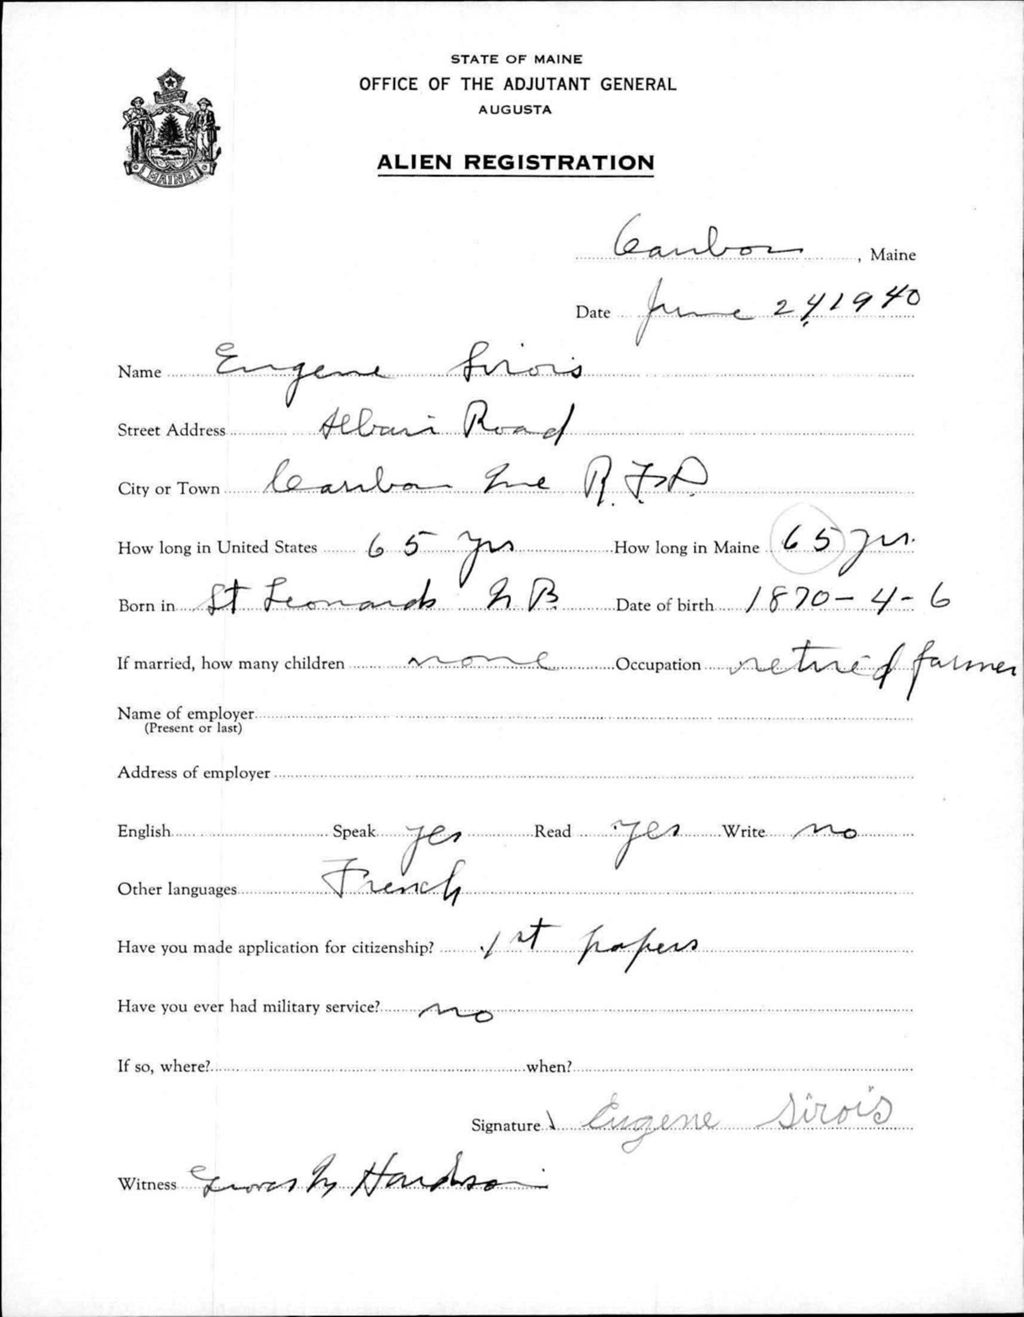 STATE OF MAINE
OFFICE OF THE ADJUTANT GENERAL
AUGUSTA
MAINE
ALIEN REGISTRATION
Caribou, Maine
Date June 24, 1940
Name Eugene Sirois
Street Address Albair Road
City or Town Caribou Me R.F.D.
How long in United States 65 yrs How long in Maine 65 yrs.
Born in St Leonards N B. Date of birth 1870-4-6
If married, how many children none Occupation retired farmer
Name of employer
(Present or last)
Address of employer
English Speak yes Read yes Write no
Other languages French
Have you made application for citizenship? 1st papers
Have you ever had military service? no
If so, where? when?
Signature Eugene Sirois
Witness